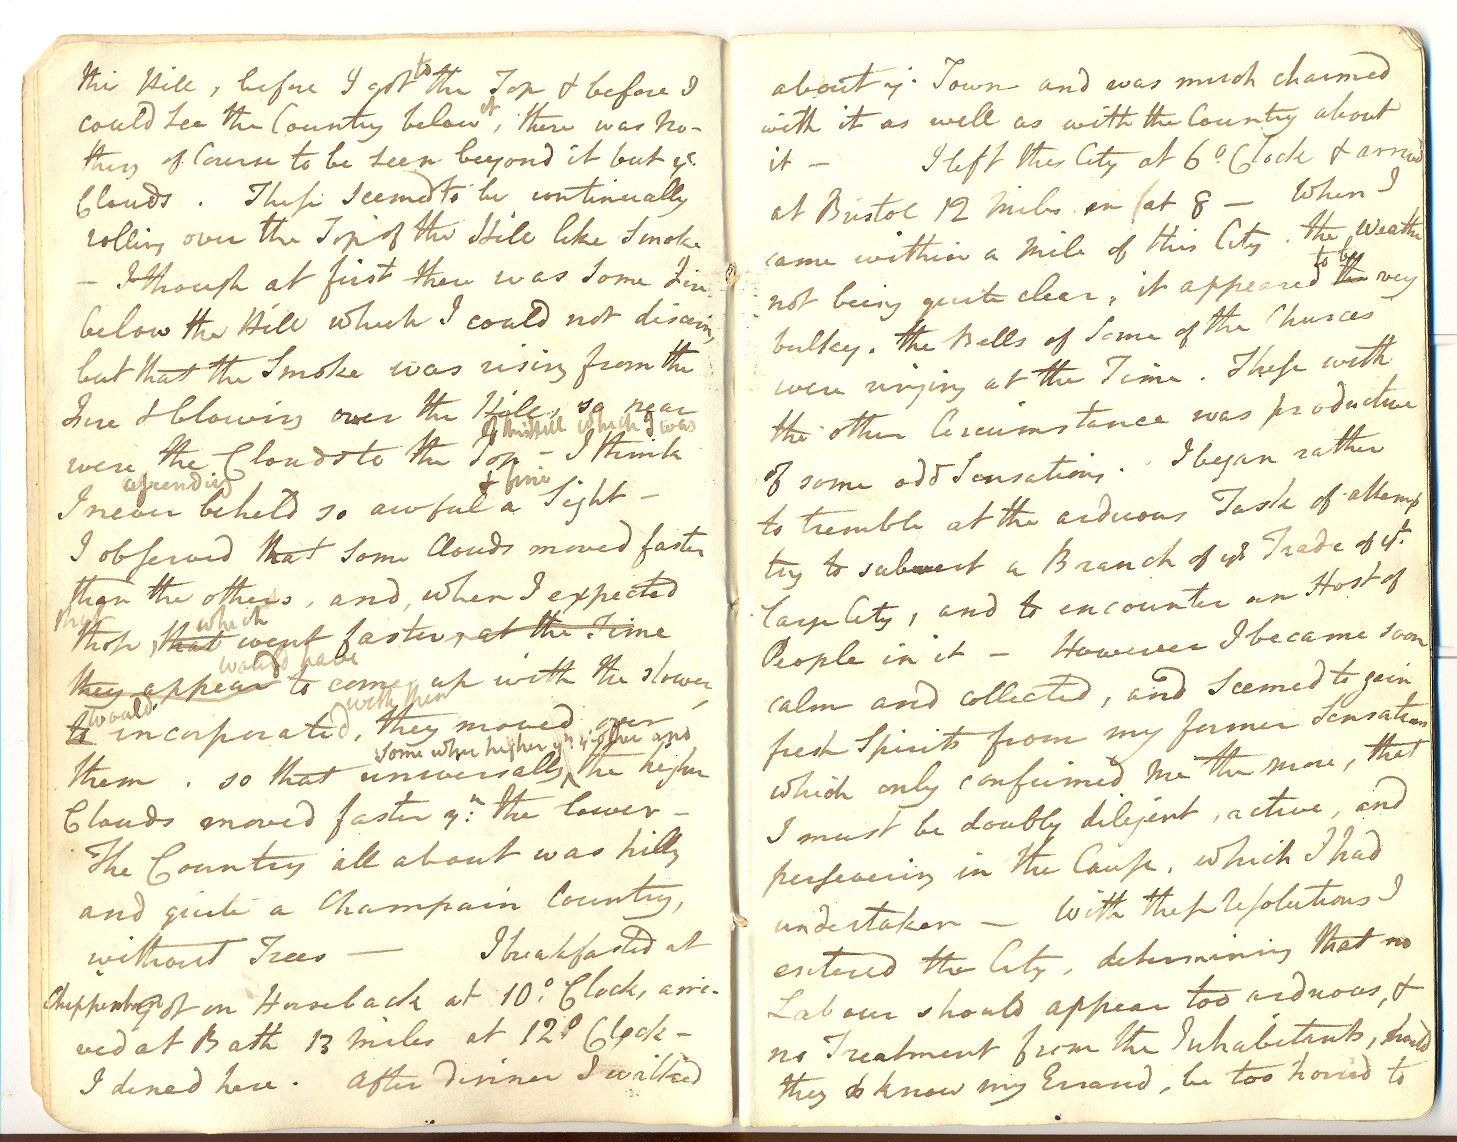 this Hill, before I got to the Top & before I
could see the Country below it, there was no-
thing of Course to be seen beyond it but ye
Clouds. These seemed to be continually
rolling over the Top of the Hill like Smoke
— I though at first there was some Fire
below the Hill which I could not discern,
but that the Smoke was rising from the
Fire & blowing over the Hill, so near
of this Hill which I was
were the Clouds to the Top — I think
ascending & fine
I never beheld so awful a Sight —
I observed that some Clouds moved faster
than the others, and, when I expected
that which
those, that went faster, at the Time
would have
they appear to come up with the slower,
would with them
to incorporated, they moved over
some what higher yn ye other and
them. so that universally the higher
Clouds moved faster yn: the lower —
The Country all about was hilly
and quite a Champain Country,
without Trees — I breakfasted at
Chippenham got on Horseback at 10 o Clock, arri-
ved at Bath 13 Miles at 12 o Clock —
I dined here. After dinner I walked
about ye Town and was much charmed
with it as well as with the Country about
it — I left this City at 6 o Clock & arrived
at Bristol 12 Miles at 8 — When I
came within a Mile of this City. the Weather
not being quite clear, it appeared to be very
bulkey. the Bells of Some of the Churces
were ringing at the Time. These with
the other Circumstance was productive
of some odd Sensations. I began rather
to tremble at the arduous Task of attemp
ting to subvert a Branch of ye Trade of yt.
large City, and to encounter an Host of
People in it — However I became soon
calm and collected, and Seemed to gain
fresh Spirits from my former Sensations
which only confirmed me the more, that
I must be doubly diligent, active, and
persevering in the Cause, which I had
undertaken — With these resolutions I
entered the City, determining that no
Labour should appear too arduous, &
no Treatment from the Inhabitants, should
they know my Errand, be too horrid to